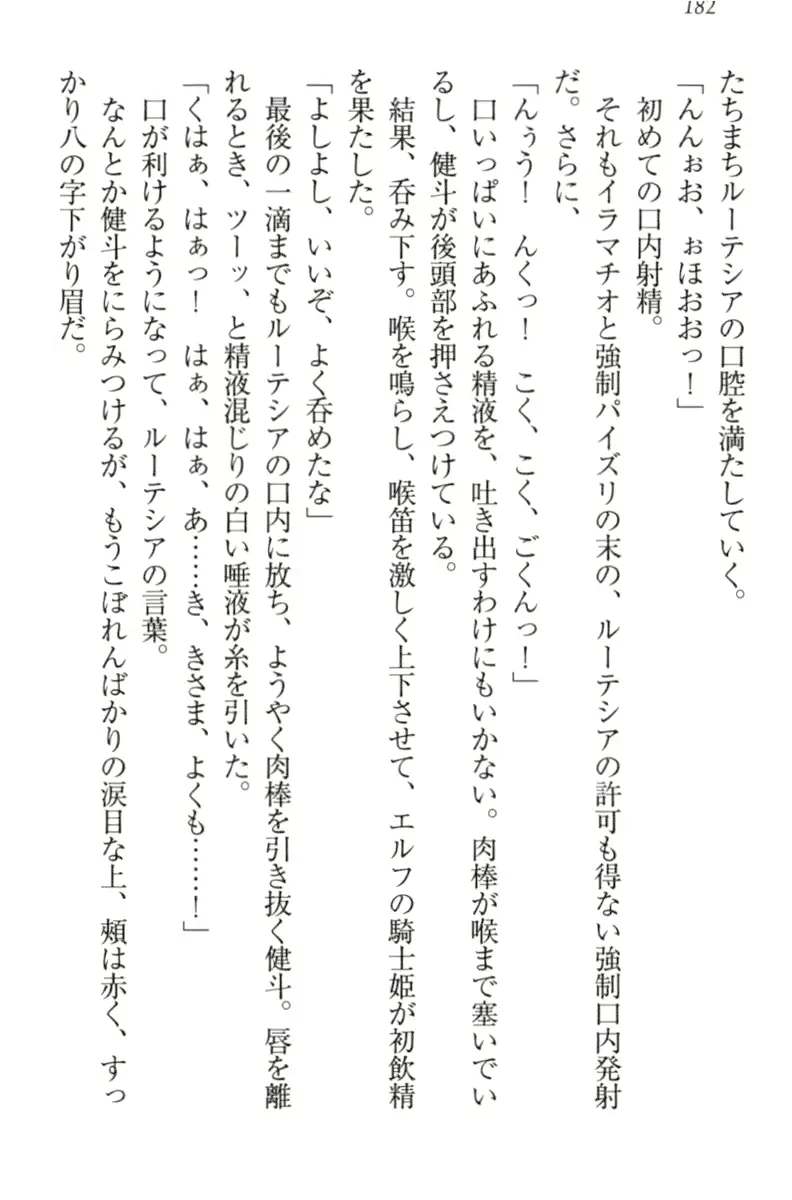 182
たちまちルーテシアの口腔を満たしていく。
「んんぉお、ぉほおおっ！」
初めての口内射精。
それもイラマチオと強制パイズリの末の、ルーテシアの許可も得ない強制口内発射
だ。さらに、
「んぅう！　んくっ！　こく、こく、ごくんっ！」
口いっぱいにあふれる精液を、吐き出すわけにもいかない。肉棒が喉まで塞いでい
るし、健斗が後頭部を押さえつけている。
結果、呑み下す。喉を鳴らし、喉笛を激しく上下させて、エルフの騎士姫が初飲精
を果たした。
「よしよし、いいぞ、よく呑めたな」
最後の一滴までもルーテシアの口内に放ち、ようやく肉棒を引き抜く健斗。唇を離
れるとき、ツーッ、と精液混じりの白い唾液が糸を引いた。
「くはぁ、はぁっ！　はぁ、はぁ、あ……き、きさま、よくも……！」
口が利けるようになって、ルーテシアの言葉。
なんとか健斗をにらみつけるが、もうこぼれんばかりの涙目な上、頬は赤く、すっ
かり八の字下がり眉だ。